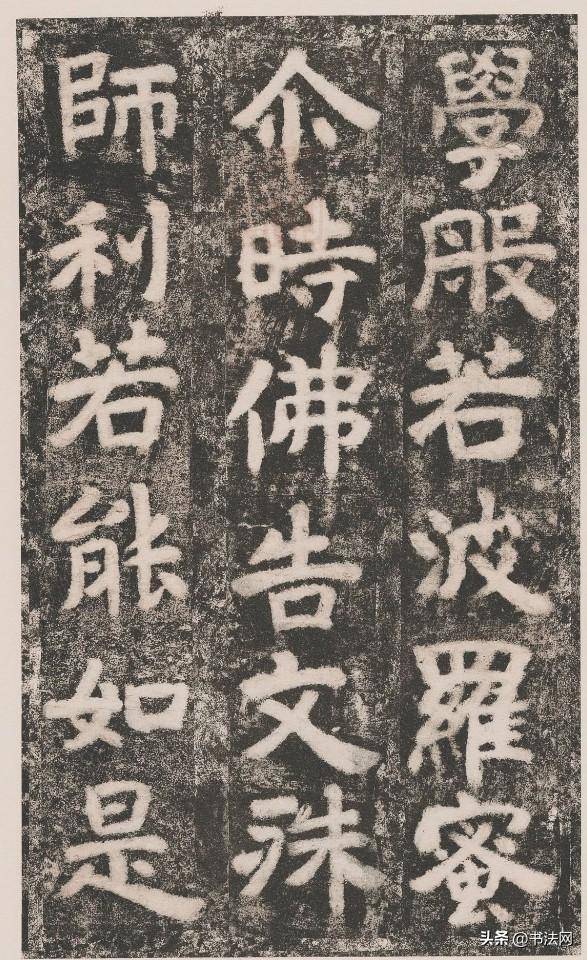 學般若波羅蜜
尒時佛告文殊
師利若能如是
头条 @书法网